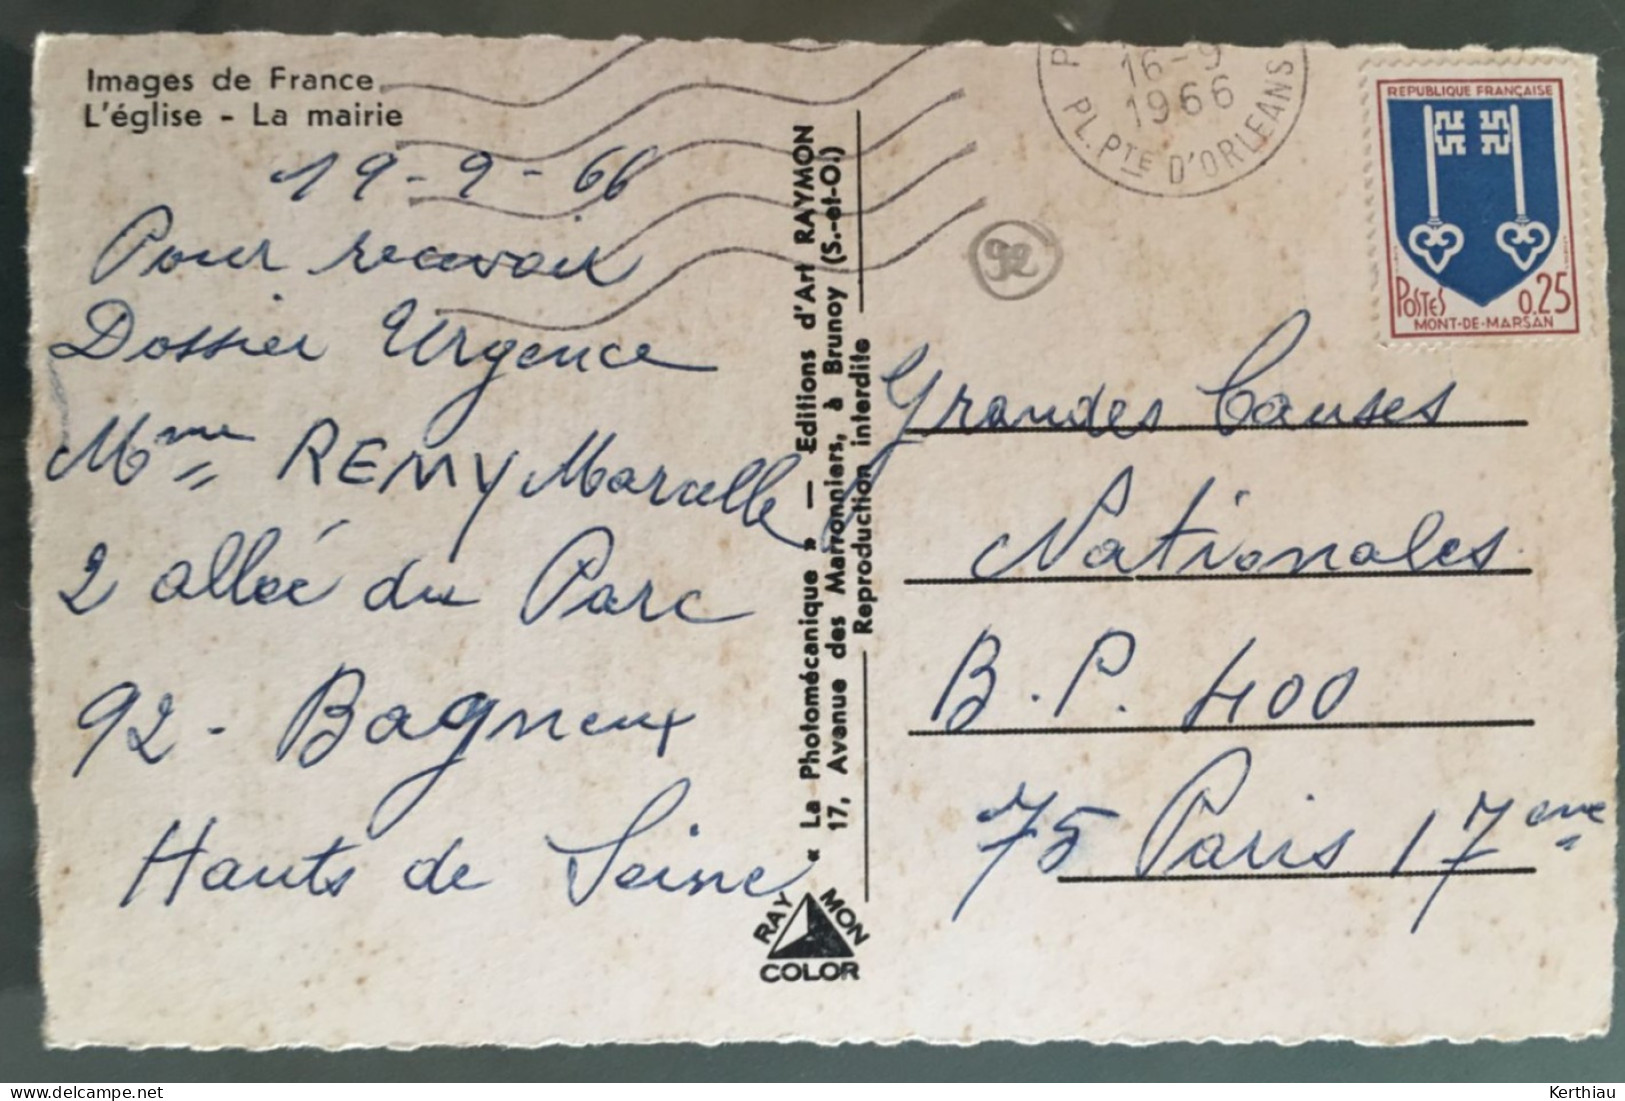 Images de France
L'église - La mairie
19-9-66
Pour recevoir
Dossier Urgence
Mme REMY Marcelle
2 allée du Parc
92 - Bagneux
Hauts de Seine
« La Photomécanique » — Editions d'Art RAYMON
17, Avenue des Marronniers, à Brunoy (S.-et-O.)
Reproduction interdite
RAY MON
COLOR
16-9
1966
PL. PTE D'ORLEANS
92
REPUBLIQUE FRANÇAISE
POSTES 0,25
MONT-DE-MARSAN
Grandes Causes
Nationales
B.P. 400
75 Paris 17eme
Kerthiau